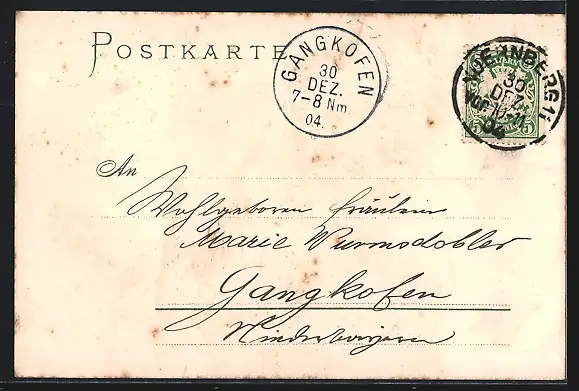 POSTKARTE
GANGKOFEN
30
DEZ.
7-8 Nm
04.
NUERNBERG 11
30
DEZ.
VOR 10-11
04
5 5
An
Wohlgeboren Fräulein
Marie Wurmsdobler
Gangkofen
Niederbayern